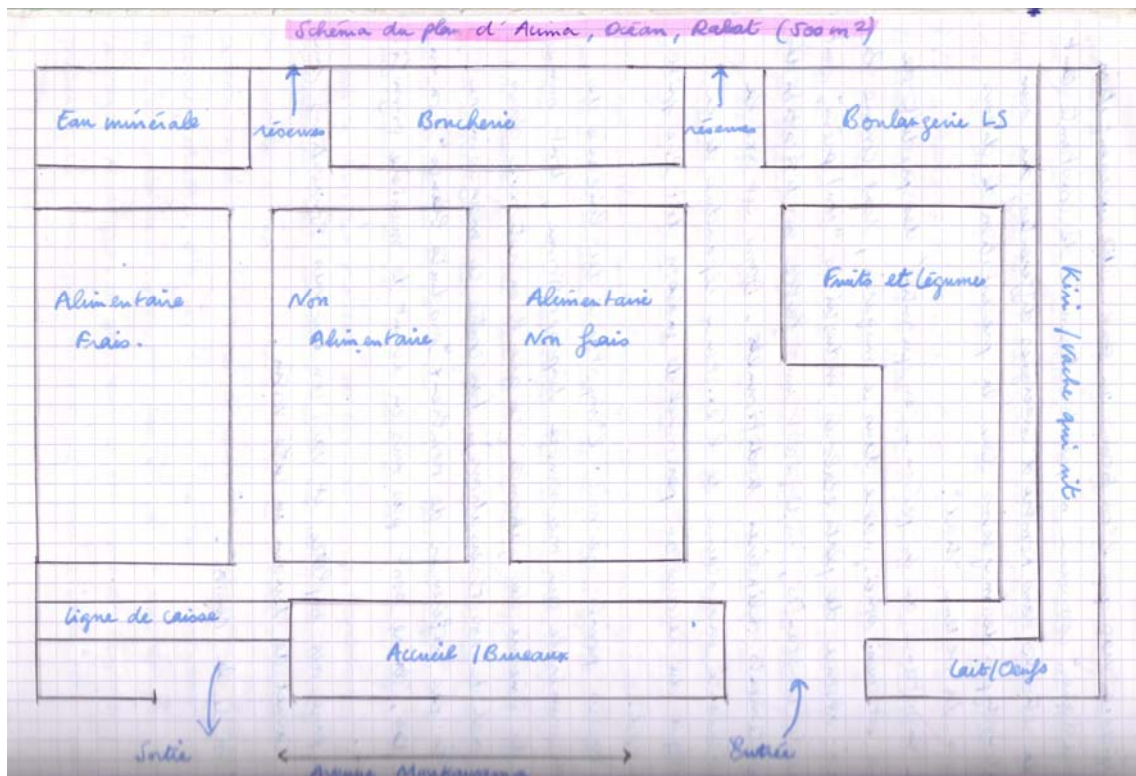 Schéma du plan d'Acima, Océan, Rabat (500 m²)
Eau minérale
réserves
Boucherie
réserves
Boulangerie LS
Alimentaire
Frais.
Non
Alimentaire
Alimentaire
Non frais
Fruits et Légumes
Kiri / Vache qui rit
ligne de caisse
Accueil / Bureaux
Lait/Oeufs
Sortie
Entrée
Avenue